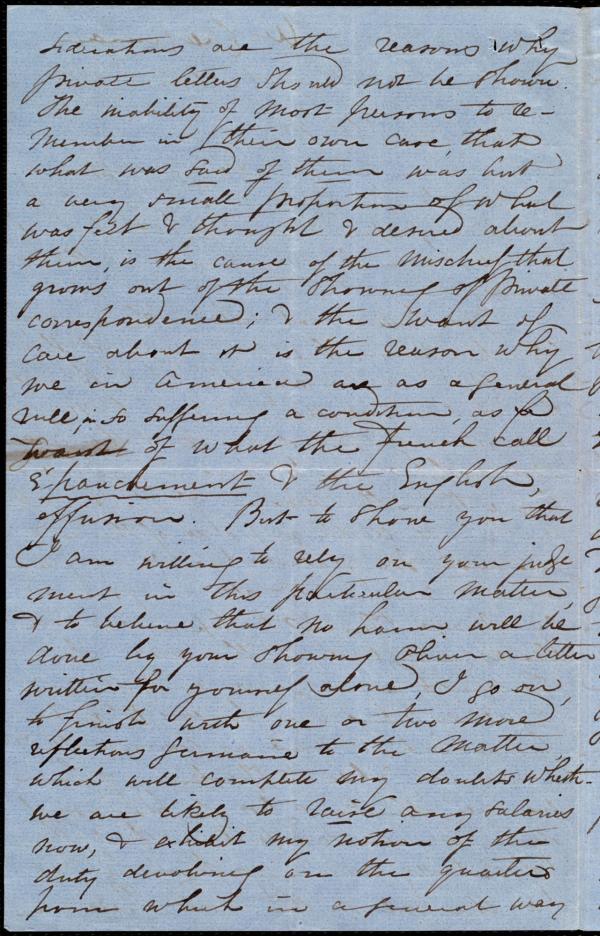 siderations are the reasons why
private letters should not be shown.
The inability of most persons to re-
member in their own case, that
what was said of them was but
a very small proportion of what
was felt & thought & desired about
them, is the cause of the mischief that
grows out of the showing of private
correspondence; & the want of
care about it is the reason why
we in America are as a general
rule, in so suffering a condition, as to
want of what the French call
épanchement & the English,
effusion. But to show you that
I am willing to rely on your judge
ment in this particular matter,
& to believe that no harm will be
done by your showing Oliver a letter
written for yourself alone, I go on,
to finish with one or two more
reflections germaine to the matter,
which will complete my doubts wheth-
we are likely to raise any salaries
now, & exhibit my notion of the
duty devolving on the quarters
from which in a general way